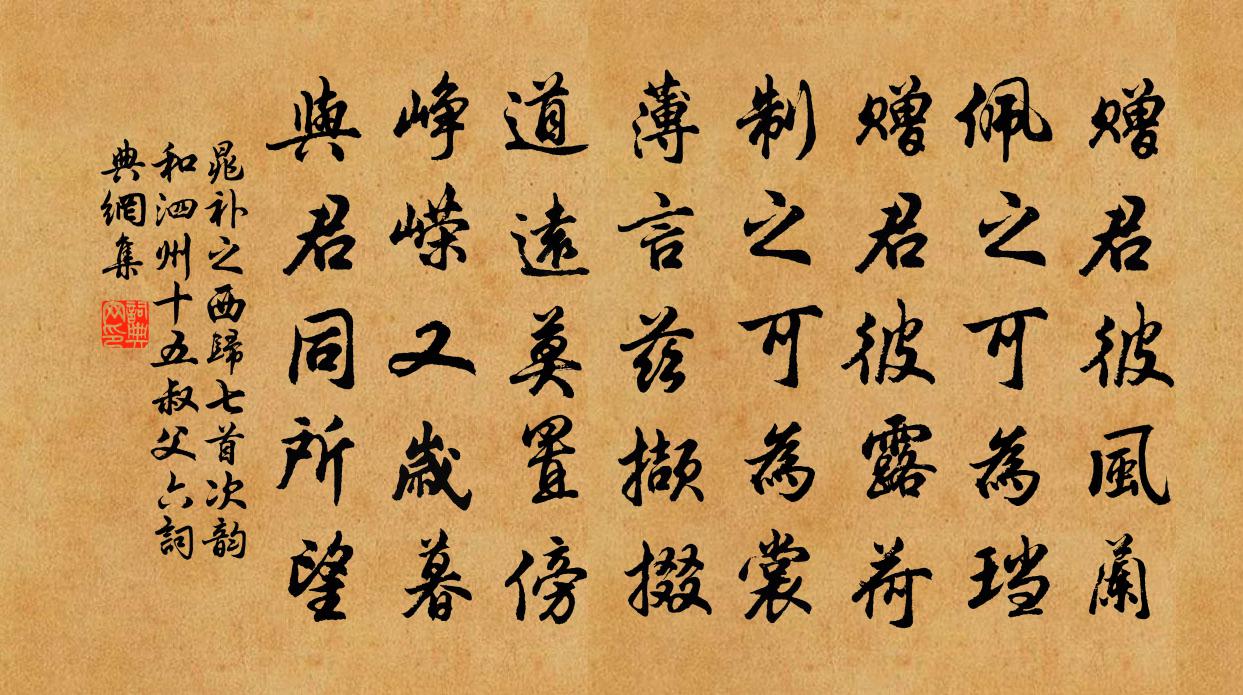 赠君彼風蘭
佩之可為珰
赠君彼露荷
制之可為裳
薄言兹擷掇
道遠莫置傍
峥嵘又歲暮
與君同所望
晁补之西歸七首次韵
和泗州十五叔父六詞
典網集
詞典
网印